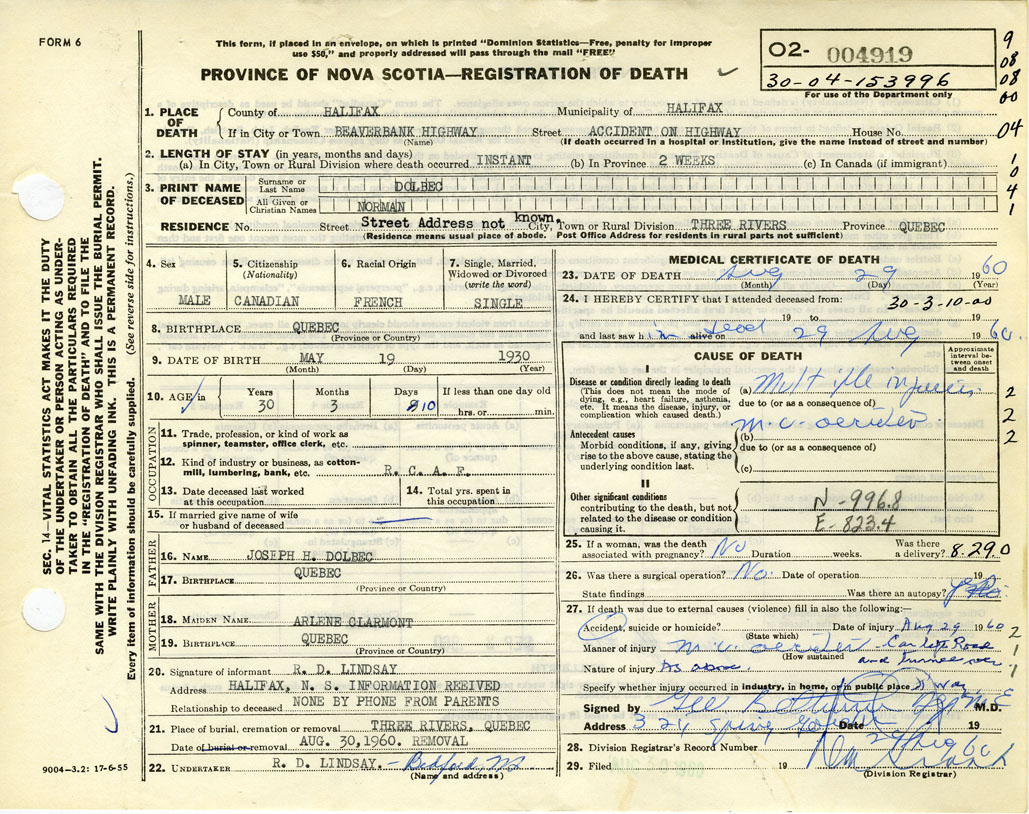 FORM 6
This form, if placed in an envelope, on which is printed "Dominion Statistics—Free, penalty for improper
use $50," and properly addressed will pass through the mail "FREE"
PROVINCE OF NOVA SCOTIA—REGISTRATION OF DEATH
O2- 004919
30-04-153996
For use of the Department only
9
08
08
00
04
1
0
4
1
1. PLACE OF DEATH County of HALIFAX Municipality of HALIFAX
If in City or Town BEAVERBANK HIGHWAY Street ACCIDENT ON HIGHWAY House No.
(Name) (If death occurred in a hospital or institution, give the name instead of street and number)
2. LENGTH OF STAY (in years, months and days)
(a) In City, Town or Rural Division where death occurred INSTANT (b) In Province 2 WEEKS (c) In Canada (if immigrant)
3. PRINT NAME OF DECEASED
Surname or Last Name DOLBEC
All Given or Christian Names NORMAN
RESIDENCE No. Street Street Address not known, City, Town or Rural Division THREE RIVERS Province QUEBEC
(Residence means usual place of abode. Post Office Address for residents in rural parts not sufficient)
4. Sex
MALE
5. Citizenship
(Nationality)
CANADIAN
6. Racial Origin
FRENCH
7. Single, Married,
Widowed or Divorced
(write the word)
SINGLE
8. BIRTHPLACE QUEBEC
(Province or Country)
9. DATE OF BIRTH MAY 19 1930
(Month) (Day) (Year)
10. AGE in Years Months Days If less than one day old
30 3 10 hrs. or min.
OCCUPATION
11. Trade, profession, or kind of work as
spinner, teamster, office clerk, etc.
12. Kind of industry or business, as cotton-
mill, lumbering, bank, etc. R. C. A. F.
13. Date deceased last worked
at this occupation
14. Total yrs. spent in
this occupation
15. If married give name of wife
or husband of deceased
FATHER
16. NAME JOSEPH H. DOLBEC
17. BIRTHPLACE QUEBEC
(Province or Country)
MOTHER
18. MAIDEN NAME ARLENE CLARMONT
19. BIRTHPLACE QUEBEC
(Province or Country)
20. Signature of informant R. D. LINDSAY
Address HALIFAX, N. S. INFORMATION REEIVED
Relationship to deceased NONE BY PHONE FROM PARENTS
21. Place of burial, cremation or removal THREE RIVERS, QUEBEC
Date of burial or removal AUG. 30,1960. REMOVAL
22. UNDERTAKER R. D. LINDSAY. - Bedford, N.S.
(Name and address)
MEDICAL CERTIFICATE OF DEATH
23. DATE OF DEATH Aug 29 1960
(Month) (Day) (Year)
24. I HEREBY CERTIFY that I attended deceased from: 30-3-10-00
19 to 19
and last saw h im dead alive on 29 Aug 1960.
CAUSE OF DEATH
Approximate
interval be-
tween onset
and death
I
Disease or condition directly leading to death
(This does not mean the mode of
dying, e.g., heart failure, asthenia,
etc. It means the disease, injury, or
complication which caused death.)
(a) Multiple injuries
due to (or as a consequence of)
m.v. accident
Antecedent causes
Morbid conditions, if any, giving
rise to the above cause, stating the
underlying condition last.
(b)
due to (or as a consequence of)
(c)
II
Other significant conditions
contributing to the death, but not
related to the disease or condition
causing it.
N-996.8
E-823.4
2
2
2
25. If a woman, was the death
associated with pregnancy? No Duration weeks. Was there
a delivery? 8.29.0
26. Was there a surgical operation? No. Date of operation 19
State findings Was there an autopsy?
27. If death was due to external causes (violence) fill in also the following:—
Accident, suicide or homicide? Date of injury Aug 29 1960
(State which)
Manner of injury m.v. accident - Car left Road
(How sustained) and turned over
Nature of injury As above.
2
1
1
Specify whether injury occurred in industry, in home, or in public place
Signed by M.D.
Address Spring Garden Date 19
29 Aug 60
28. Division Registrar's Record Number
29. Filed 19
AUG 30 1960
(Division Registrar)
SEC. 14—VITAL STATISTICS ACT MAKES IT THE DUTY
OF THE UNDERTAKER OR PERSON ACTING AS UNDER-
TAKER TO OBTAIN ALL THE PARTICULARS REQUIRED
IN THE "REGISTRATION OF DEATH" AND TO FILE THE
SAME WITH THE DIVISION REGISTRAR WHO SHALL ISSUE THE BURIAL PERMIT.
WRITE PLAINLY WITH UNFADING INK. THIS IS A PERMANENT RECORD.
Every item of information should be carefully supplied. (See reverse side for instructions.)
9004-3.2: 17-6-55